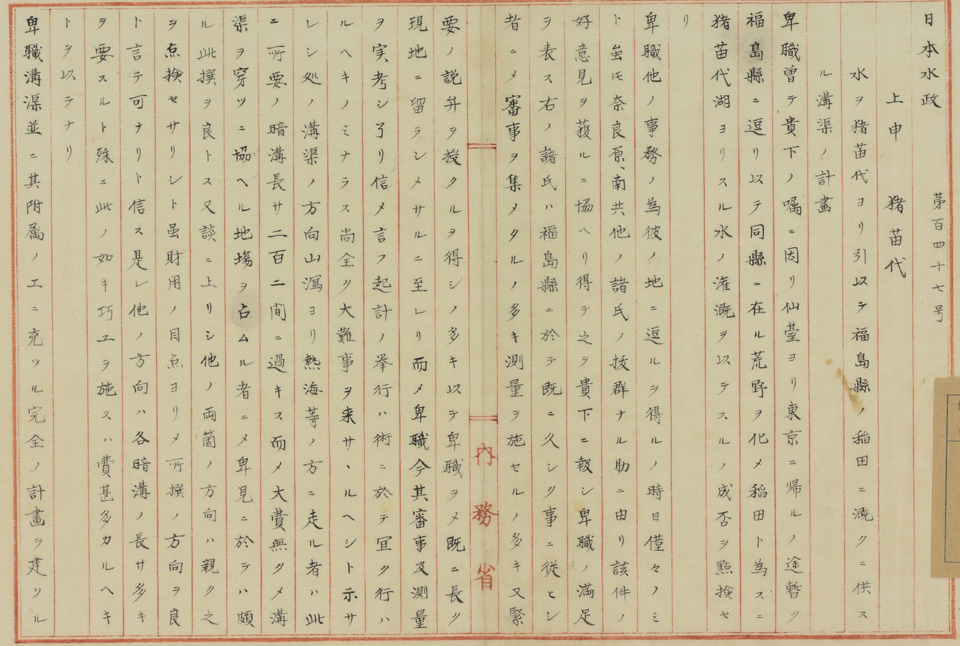 第百四十七号
日本水政
上申 猪苗代
水ヲ猪苗代ヨリ引以テ福島縣ノ稲田ニ漑クニ供ス
ル溝渠ノ計畫
卑職曽テ貴下ノ嘱ニ因リ仙臺ヨリ東京ニ帰ルノ途暫ク
福島縣ニ逗リ以テ同縣ニ在ル荒野ヲ化メ稲田ト為スニ
猪苗代湖ヨリスル水ノ灌漑ヲ以テスルノ成否ヲ點検セ
リ
卑職他ノ事務ノ為彼ノ地ニ逗ルヲ得ルノ時日僅々ノミ
ト虽モ奈良原、南其他ノ諸氏ノ抜群ナル助ニ由リ該件ノ
好意見ヲ獲ルニ協ヘリ得テ之ヲ貴下ニ報シ卑職ノ満足
ヲ表ス右ノ諸氏ハ福島縣ニ於テ既ニ久シク事ニ從ヒシ
者ニメ審事ヲ集メタルノ多キ測量ヲ施セルノ多キ又緊
内務省
要ノ説弁ヲ授クルヲ得シノ多キ以テ卑職ヲメ既ニ長ク
現地ニ留ランメサルニ至レリ而メ卑職今其審事及測量
ヲ実考シ了リ信メ言フ起計ノ挙行ハ術ニ於テ宜ク行ハ
ルヘキノミナラス尚全ク大難事ヲ来サヽルヘシト示サ
レシ処ノ溝渠ノ方向山潟ヨリ熱海等ノ方ニ走ル者ハ此
ニ所要ノ暗溝長サ二百二間ニ過キス而メ大費無クメ溝
渠ヲ穿ツニ協ヘル地塲ヲ占ムル者ニメ卑見ニ於テハ頗
ル此撰ヲ良トス又談ニ上リシ他ノ両箇ノ方向ハ親ク之
ヲ点検セサリシト虽財用ノ目点ヨリメ所撰ノ方向ヲ良
ト言テ可ナリト信ス是レ他ノ方向ハ各暗溝ノ長サ多キ
ヲ要スルト殊ニ此ノ如キ巧工ヲ施スハ費甚多カルヘキ
トヲ以テナリ
卑職溝渠並ニ其附属ノ工ニ充ツル完全ノ計畫ヲ建ツル